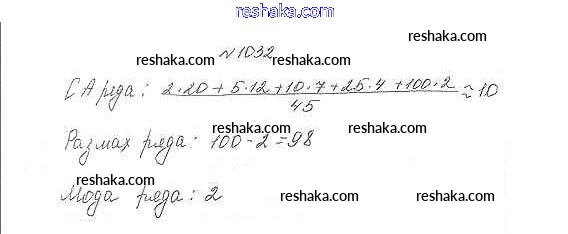 reshaka.com
reshaka.com
№1032
reshaka.com reshaka.com
СА ряда: 2·20+5·12+10·7+25·4+100·2 / 45 ≈10
reshaka.com reshaka.com
Размах ряда: 100-2=98
reshaka.com
Мода ряда: 2
reshaka.com reshaka.com